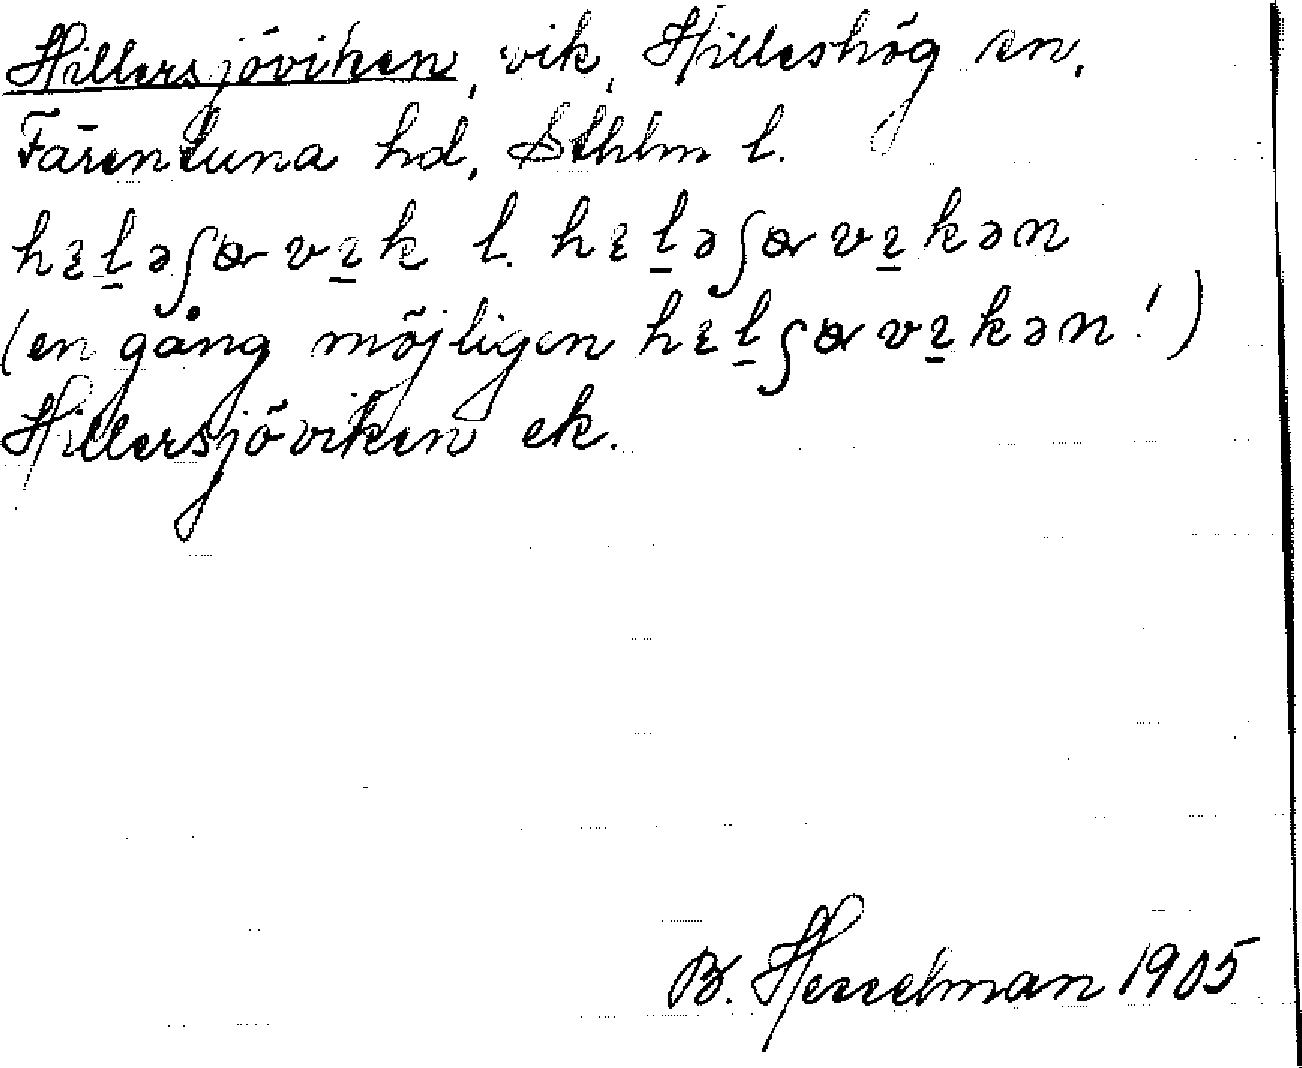 Hillersjöviken, vik, Hilleshög sn,
Färentuna hd, Sthlm l.
hɛḻəʃɷrvɪ̱k l. hɛḻəʃɷrvɪ̱kən
(en gång möjligen hɛḻʃɷrvɪ̱kən!)
Hillersjöviken ek.
B. Hesselman 1905